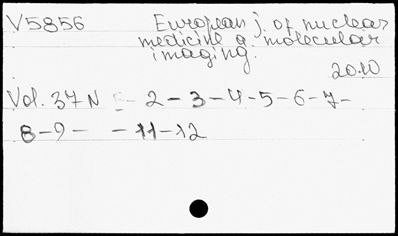 V5856 European j. of nuclear
medicine a. molecular
imaging.
2010
Vol. 37 N - 2-3-4-5-6-7-
8-9- -11-12